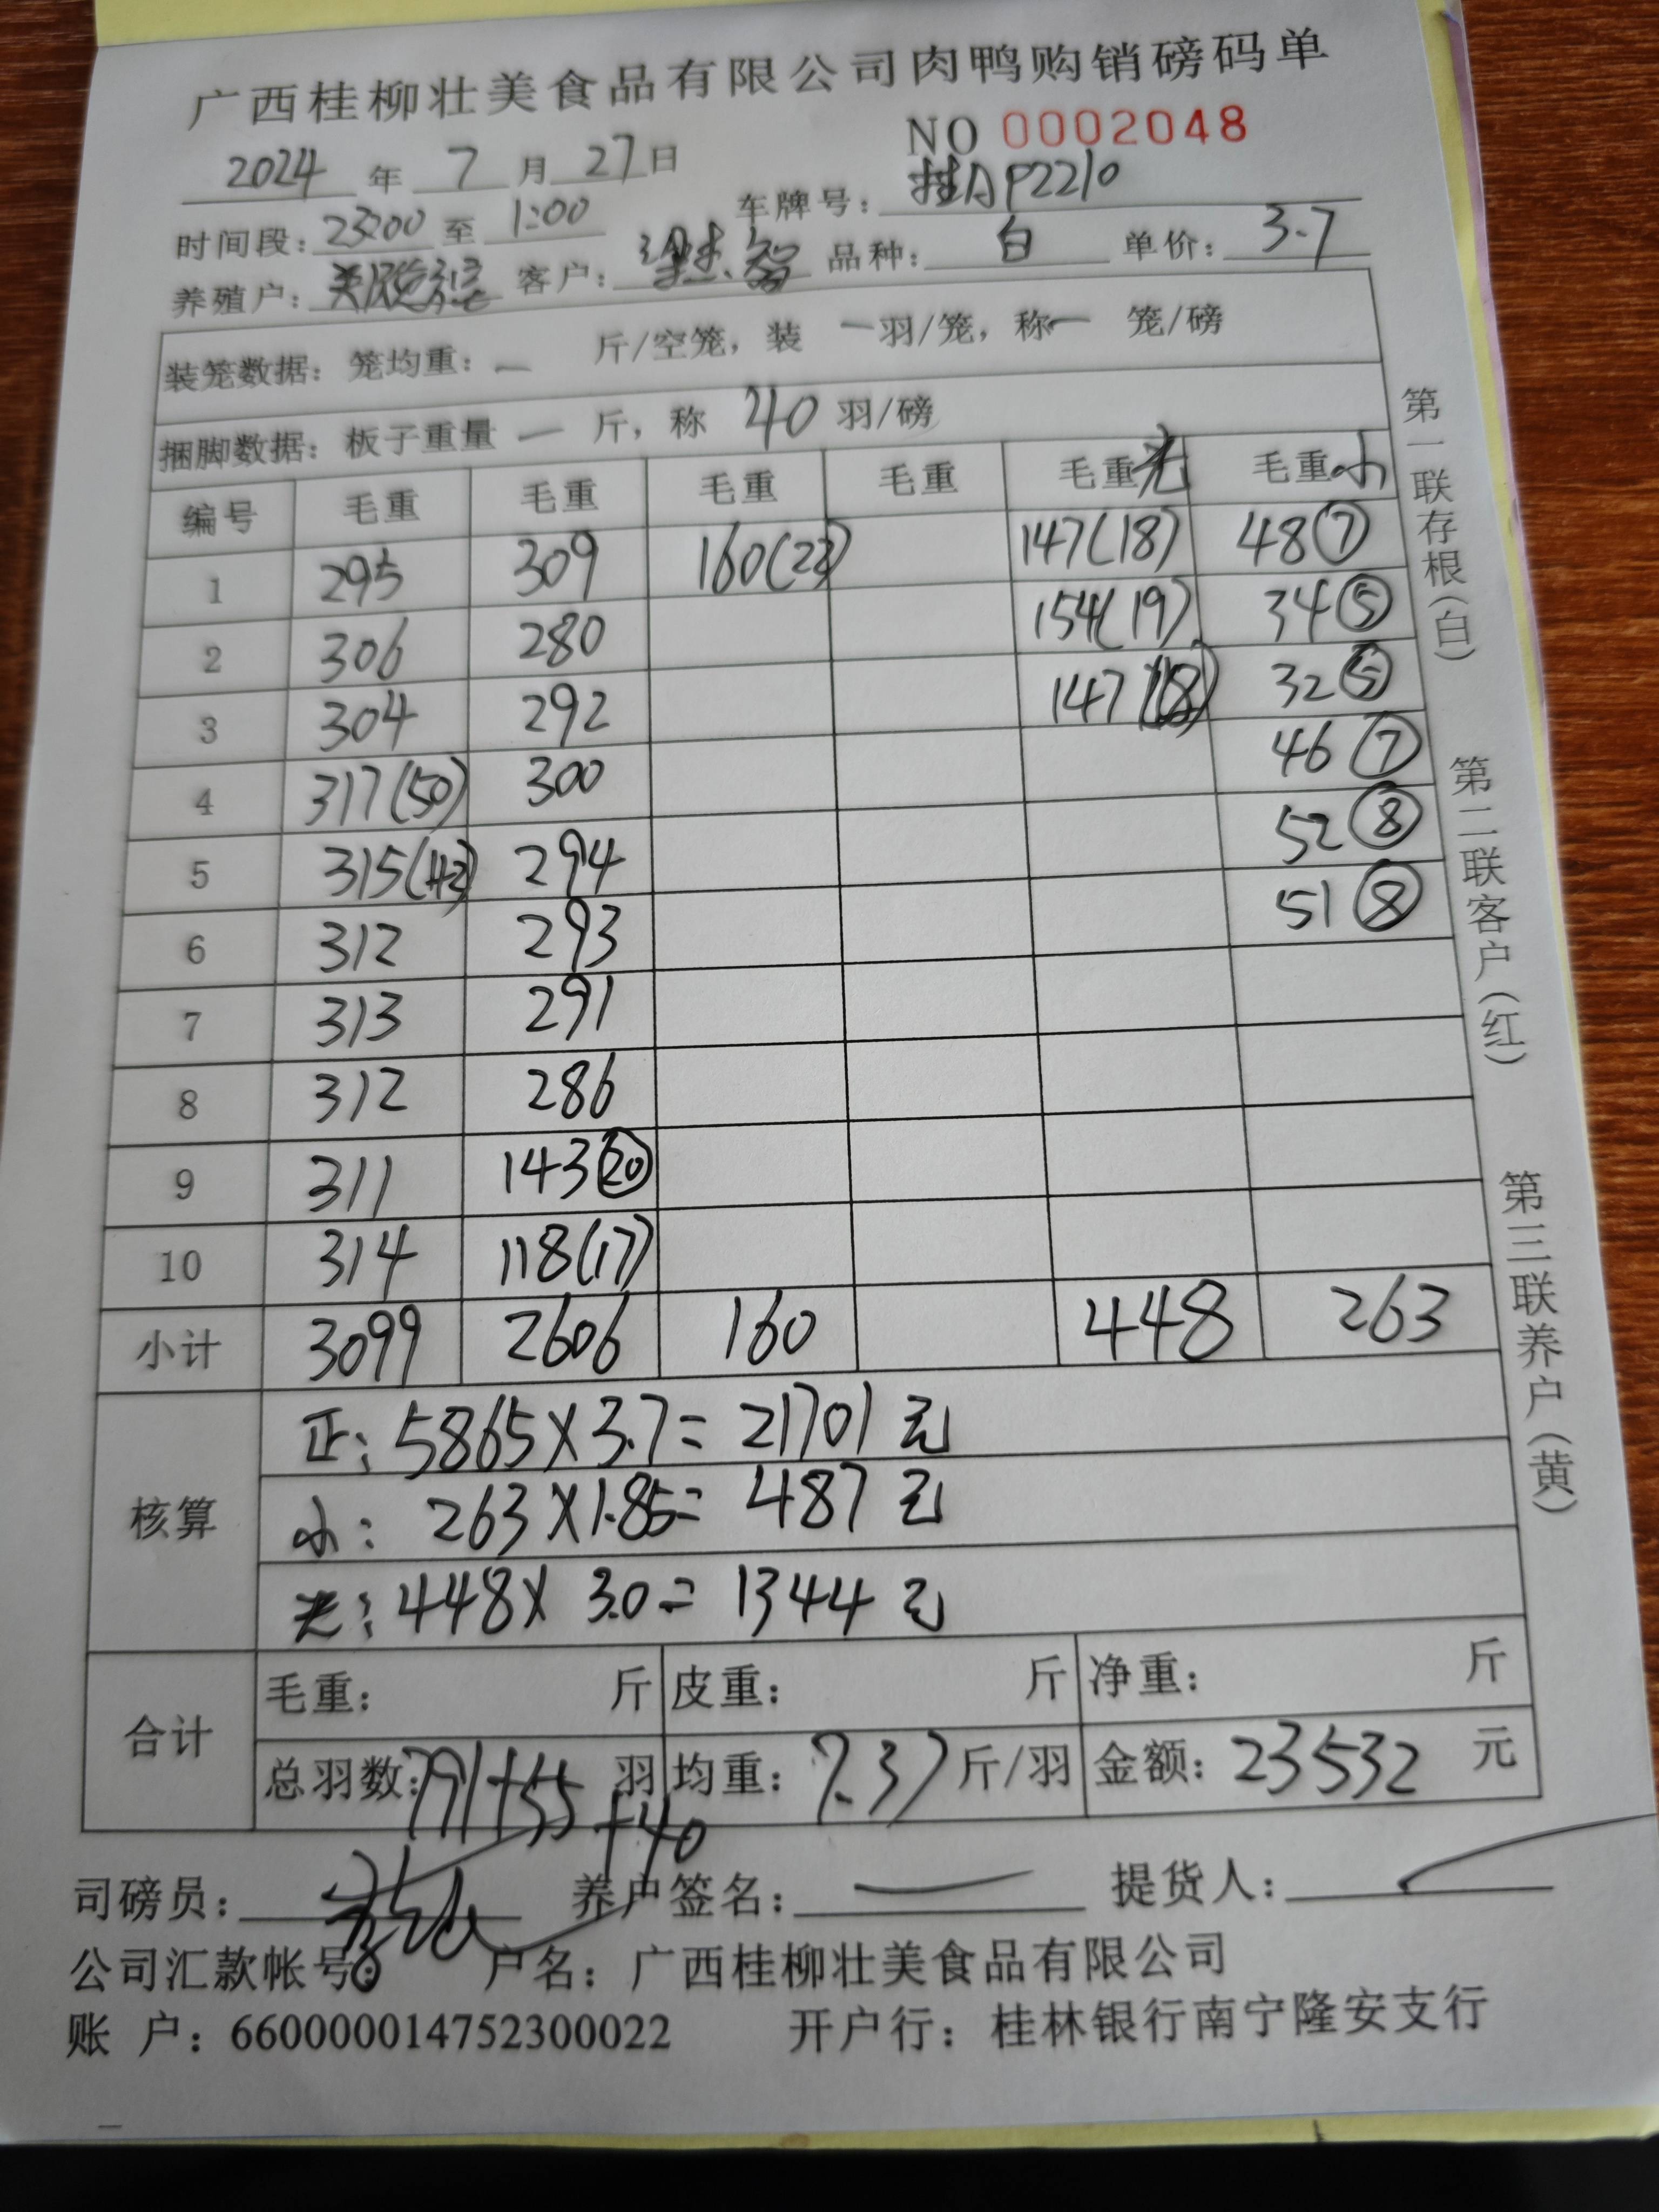 广西桂柳壮美食品有限公司肉鸭购销磅码单
NO 0002048
2024 年 7 月 27 日
时间段: 23:00 至 1:00 车牌号: 桂AP2210
养殖户: 客户: 品种: 白 单价: 3.7
装笼数据: 笼均重: — 斤/空笼, 装 — 羽/笼, 称 — 笼/磅
捆脚数据: 板子重量 — 斤, 称 40 羽/磅
编号 毛重 毛重 毛重 毛重 毛重 毛重小
1 295 309 160(22) 147(18) 48⑦
2 306 280 154(19) 34⑤
3 304 292 147(18) 32⑤
4 317(50) 300 46⑦
5 315(42) 294 52⑧
6 312 293 51⑧
7 313 291
8 312 286
9 311 143⑳
10 314 118(17)
小计 3099 2606 160 448 263
核算
正: 5865×3.7= 21701 元
小: 263×1.85= 487 元
448× 3.0= 1344 元
合计
毛重: 斤 皮重: 斤 净重: 斤
总羽数: 791+55+40 羽 均重: 7.37 斤/羽 金额: 23532 元
司磅员: 养户签名: — 提货人:
公司汇款帐号: 户名: 广西桂柳壮美食品有限公司
账 户: 660000014752300022 开户行: 桂林银行南宁隆安支行
第一联存根(白)
第二联客户(红)
第三联养户(黄)